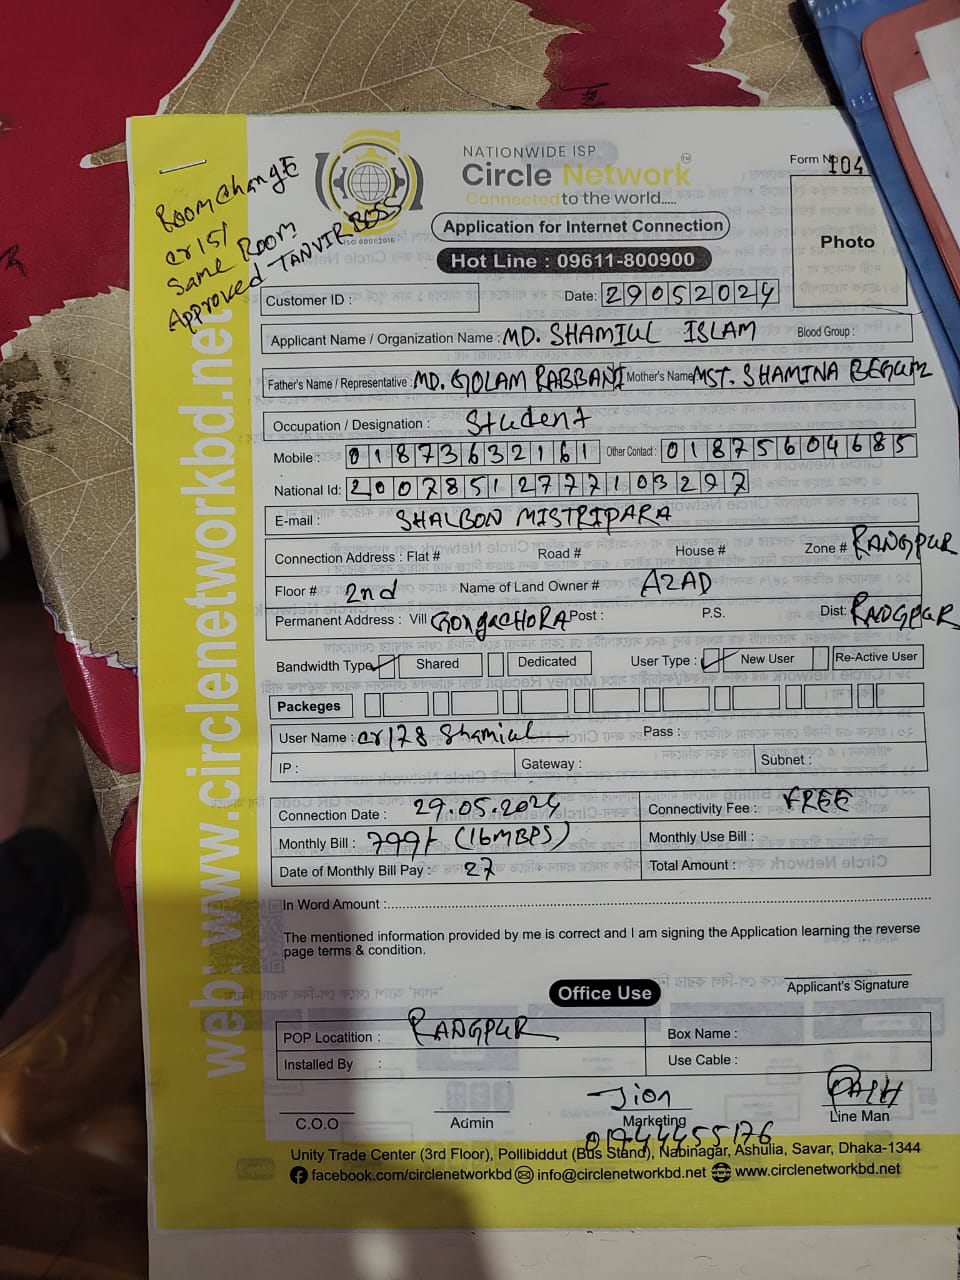 Room change
cr151
Same Room
Approved - TANVIR BOSS
NATIONWIDE ISP
Circle Network
TM
Connected to the world.....
ISO 9001:2015
Application for Internet Connection
Hot Line : 09611-800900
Form N 104
Photo
Customer ID :
Date: 29052024
Applicant Name / Organization Name : MD. SHAMIUL ISLAM Blood Group :
Father's Name / Representative : MD. GOLAM RABBANI Mother's Name MST. SHAMINA BEGUM
Occupation / Designation : Student
Mobile : 01873632161 Other Contact : 01875604685
National Id: 20078512777103297
E-mail : SHALBON MISTRIPARA
Connection Address : Flat # Road # House # Zone # RANGPUR
Floor # 2nd Name of Land Owner # AZAD
Permanent Address : Vill GongacHORA Post : P.S. Dist: RANGPUR
Bandwidth Type Shared Dedicated User Type : New User Re-Active User
Packeges
User Name : cr178 Shamiul Pass :
IP : Gateway : Subnet :
Connection Date : 29.05.2024 Connectivity Fee : FREE
Monthly Bill : 799/- (16MBPS) Monthly Use Bill :
Date of Monthly Bill Pay : 27 Total Amount :
In Word Amount :
The mentioned information provided by me is correct and I am signing the Application learning the reverse
page terms & condition.
Applicant's Signature
Office Use
POP Locatition : RANGPUR Box Name :
Installed By : Use Cable :
Jion
C.O.O Admin Marketing Line Man
01944455176
Unity Trade Center (3rd Floor), Pollibiddut (Bus Stand), Nabinagar, Ashulia, Savar, Dhaka-1344
facebook.com/circlenetworkbd info@circlenetworkbd.net www.circlenetworkbd.net
web: www.circlenetworkbd.net